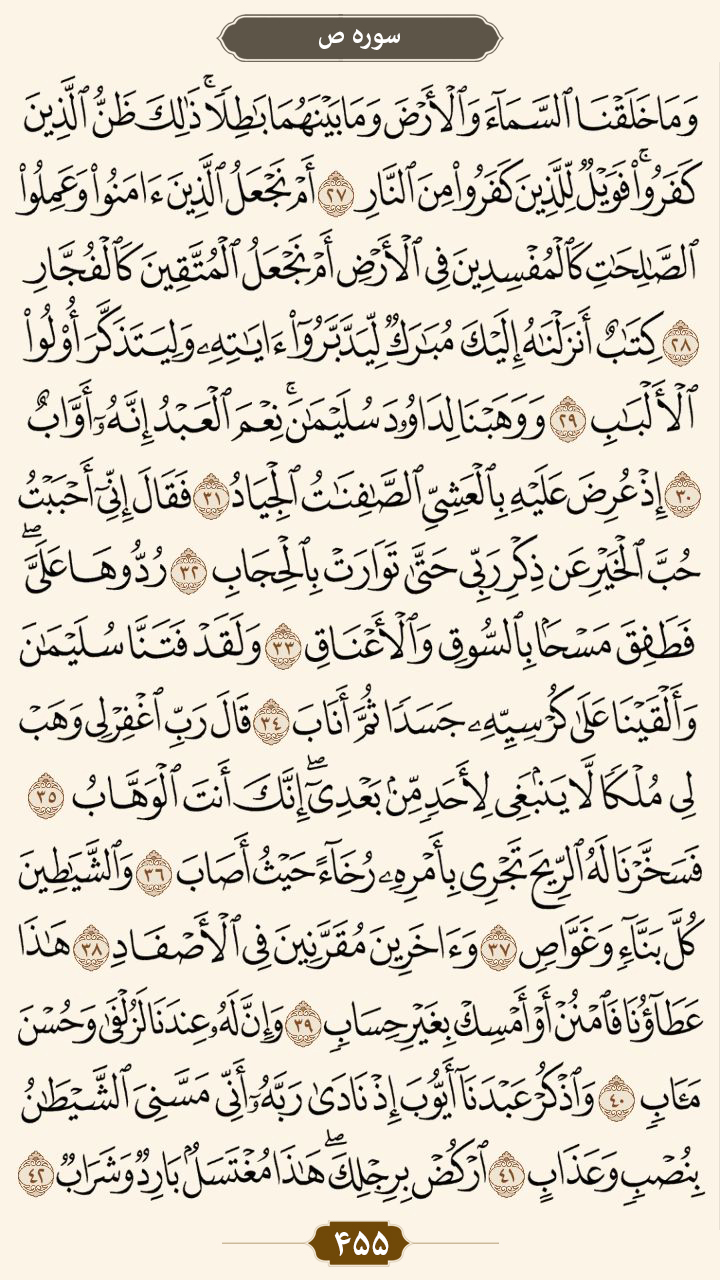 سوره ص
وَمَا خَلَقْنَا ٱلسَّمَآءَ وَٱلْأَرْضَ وَمَا بَيْنَهُمَا بَٰطِلًا ۚ ذَٰلِكَ ظَنُّ ٱلَّذِينَ
كَفَرُوا۟ ۚ فَوَيْلٌ لِّلَّذِينَ كَفَرُوا۟ مِنَ ٱلنَّارِ ٢٧ أَمْ نَجْعَلُ ٱلَّذِينَ ءَامَنُوا۟ وَعَمِلُوا۟
ٱلصَّٰلِحَٰتِ كَٱلْمُفْسِدِينَ فِى ٱلْأَرْضِ أَمْ نَجْعَلُ ٱلْمُتَّقِينَ كَٱلْفُجَّارِ
٢٨ كِتَٰبٌ أَنزَلْنَٰهُ إِلَيْكَ مُبَٰرَكٌ لِّيَدَّبَّرُوٓا۟ ءَايَٰتِهِۦ وَلِيَتَذَكَّرَ أُو۟لُوا۟
ٱلْأَلْبَٰبِ ٢٩ وَوَهَبْنَا لِدَاوُۥدَ سُلَيْمَٰنَ ۚ نِعْمَ ٱلْعَبْدُ إِنَّهُۥٓ أَوَّابٌ
٣٠ إِذْ عُرِضَ عَلَيْهِ بِٱلْعَشِىِّ ٱلصَّٰفِنَٰتُ ٱلْجِيَادُ ٣١ فَقَالَ إِنِّىٓ أَحْبَبْتُ
حُبَّ ٱلْخَيْرِ عَن ذِكْرِ رَبِّى حَتَّىٰ تَوَارَتْ بِٱلْحِجَابِ ٣٢ رُدُّوهَا عَلَىَّ ۖ
فَطَفِقَ مَسْحًۢا بِٱلسُّوقِ وَٱلْأَعْنَاقِ ٣٣ وَلَقَدْ فَتَنَّا سُلَيْمَٰنَ
وَأَلْقَيْنَا عَلَىٰ كُرْسِيِّهِۦ جَسَدًا ثُمَّ أَنَابَ ٣٤ قَالَ رَبِّ ٱغْفِرْ لِى وَهَبْ
لِى مُلْكًا لَّا يَنۢبَغِى لِأَحَدٍ مِّنۢ بَعْدِىٓ ۖ إِنَّكَ أَنتَ ٱلْوَهَّابُ ٣٥
فَسَخَّرْنَا لَهُ ٱلرِّيحَ تَجْرِى بِأَمْرِهِۦ رُخَآءً حَيْثُ أَصَابَ ٣٦ وَٱلشَّيَٰطِينَ
كُلَّ بَنَّآءٍ وَغَوَّاصٍ ٣٧ وَءَاخَرِينَ مُقَرَّنِينَ فِى ٱلْأَصْفَادِ ٣٨ هَٰذَا
عَطَآؤُنَا فَٱمْنُنْ أَوْ أَمْسِكْ بِغَيْرِ حِسَابٍ ٣٩ وَإِنَّ لَهُۥ عِندَنَا لَزُلْفَىٰ وَحُسْنَ
مَـَٔابٍ ٤٠ وَٱذْكُرْ عَبْدَنَآ أَيُّوبَ إِذْ نَادَىٰ رَبَّهُۥٓ أَنِّى مَسَّنِىَ ٱلشَّيْطَٰنُ
بِنُصْبٍ وَعَذَابٍ ٤١ ٱرْكُضْ بِرِجْلِكَ ۖ هَٰذَا مُغْتَسَلٌۢ بَارِدٌ وَشَرَابٌ ٤٢
۴۵۵